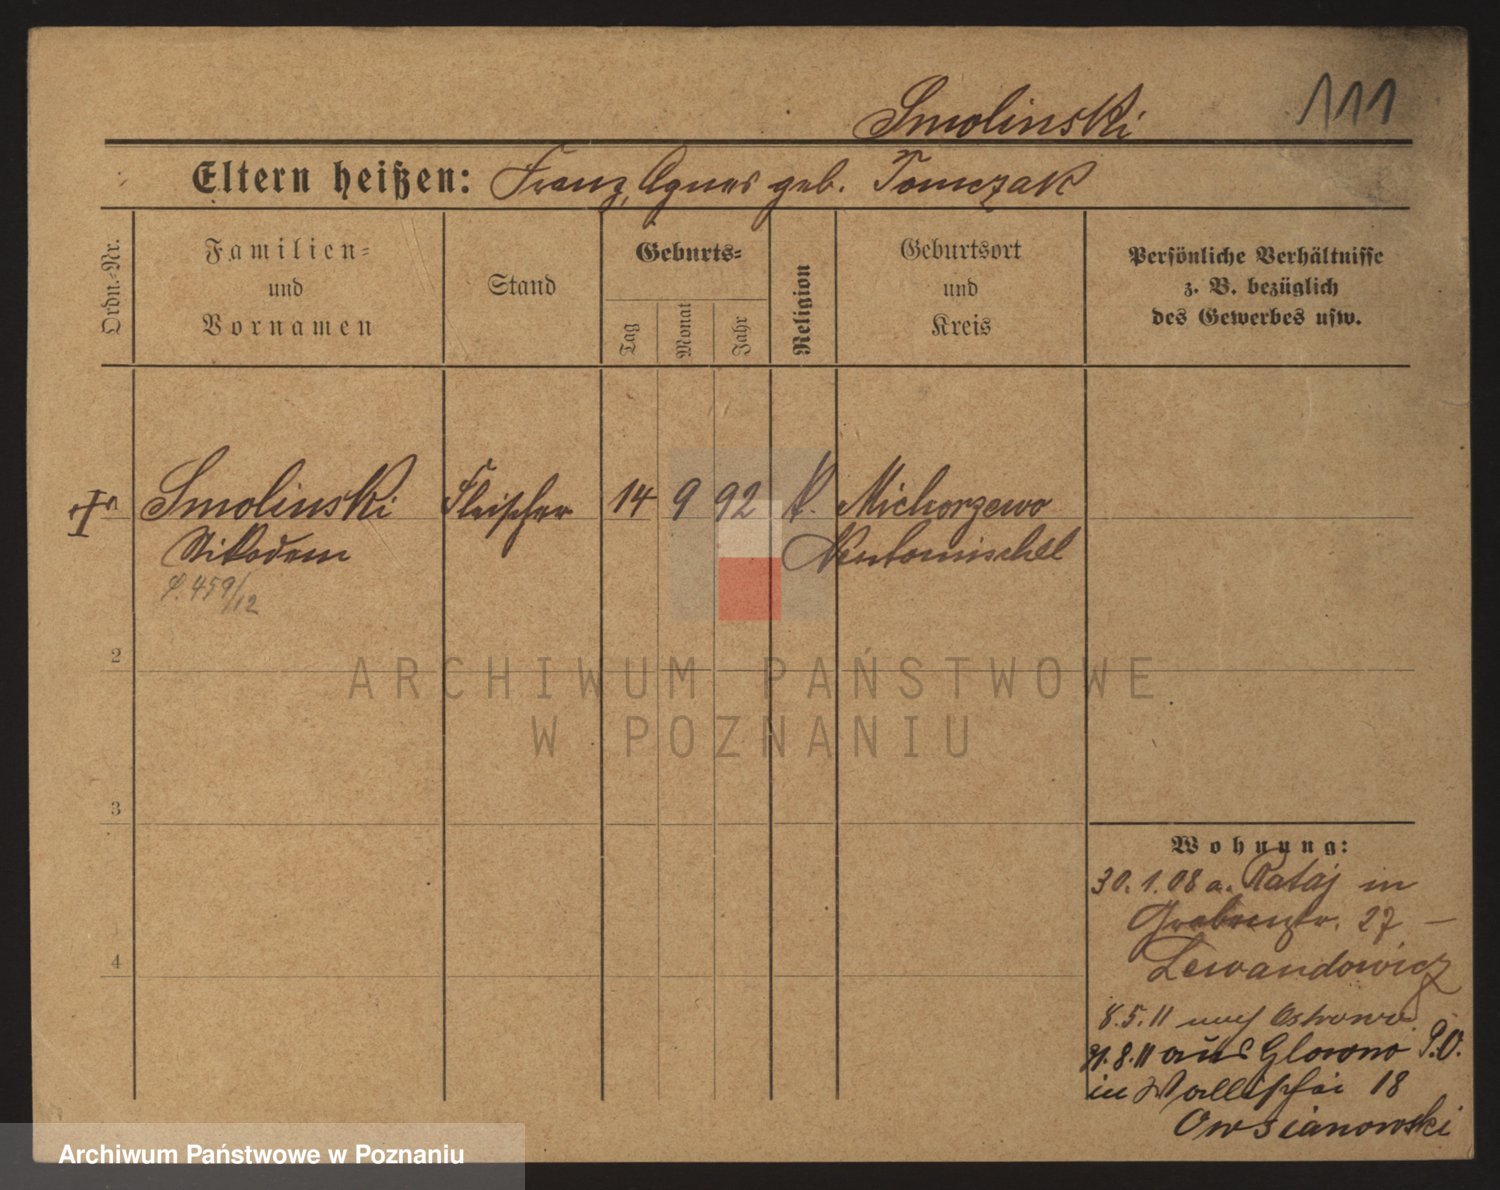 111
Smolinski
Eltern heißen: Franz, Agnes geb. Tomczak
Ordn.-Nr.
Familien-
und
Vornamen
Stand
Geburts-
Tag
Monat
Jahr
Religion
Geburtsort
und
Kreis
Persönliche Verhältnisse
z. B. bezüglich
des Gewerbes usw.
Smolinski Fleischer 14 9 92 K. Michorzewo
Nikodem Neutomischel
459/12
2
ARCHIWUM PAŃSTWOWE
W POZNANIU
3
Wohnung:
30.1.08 a. Rataj in
Grabenstr. 27 –
Lewandowicz
4
8.5.11 nach Ostrowo
31.8.11 aus Glowno P.O.
in Wallischei 18
Owsianowski
Archiwum Państwowe w Poznaniu